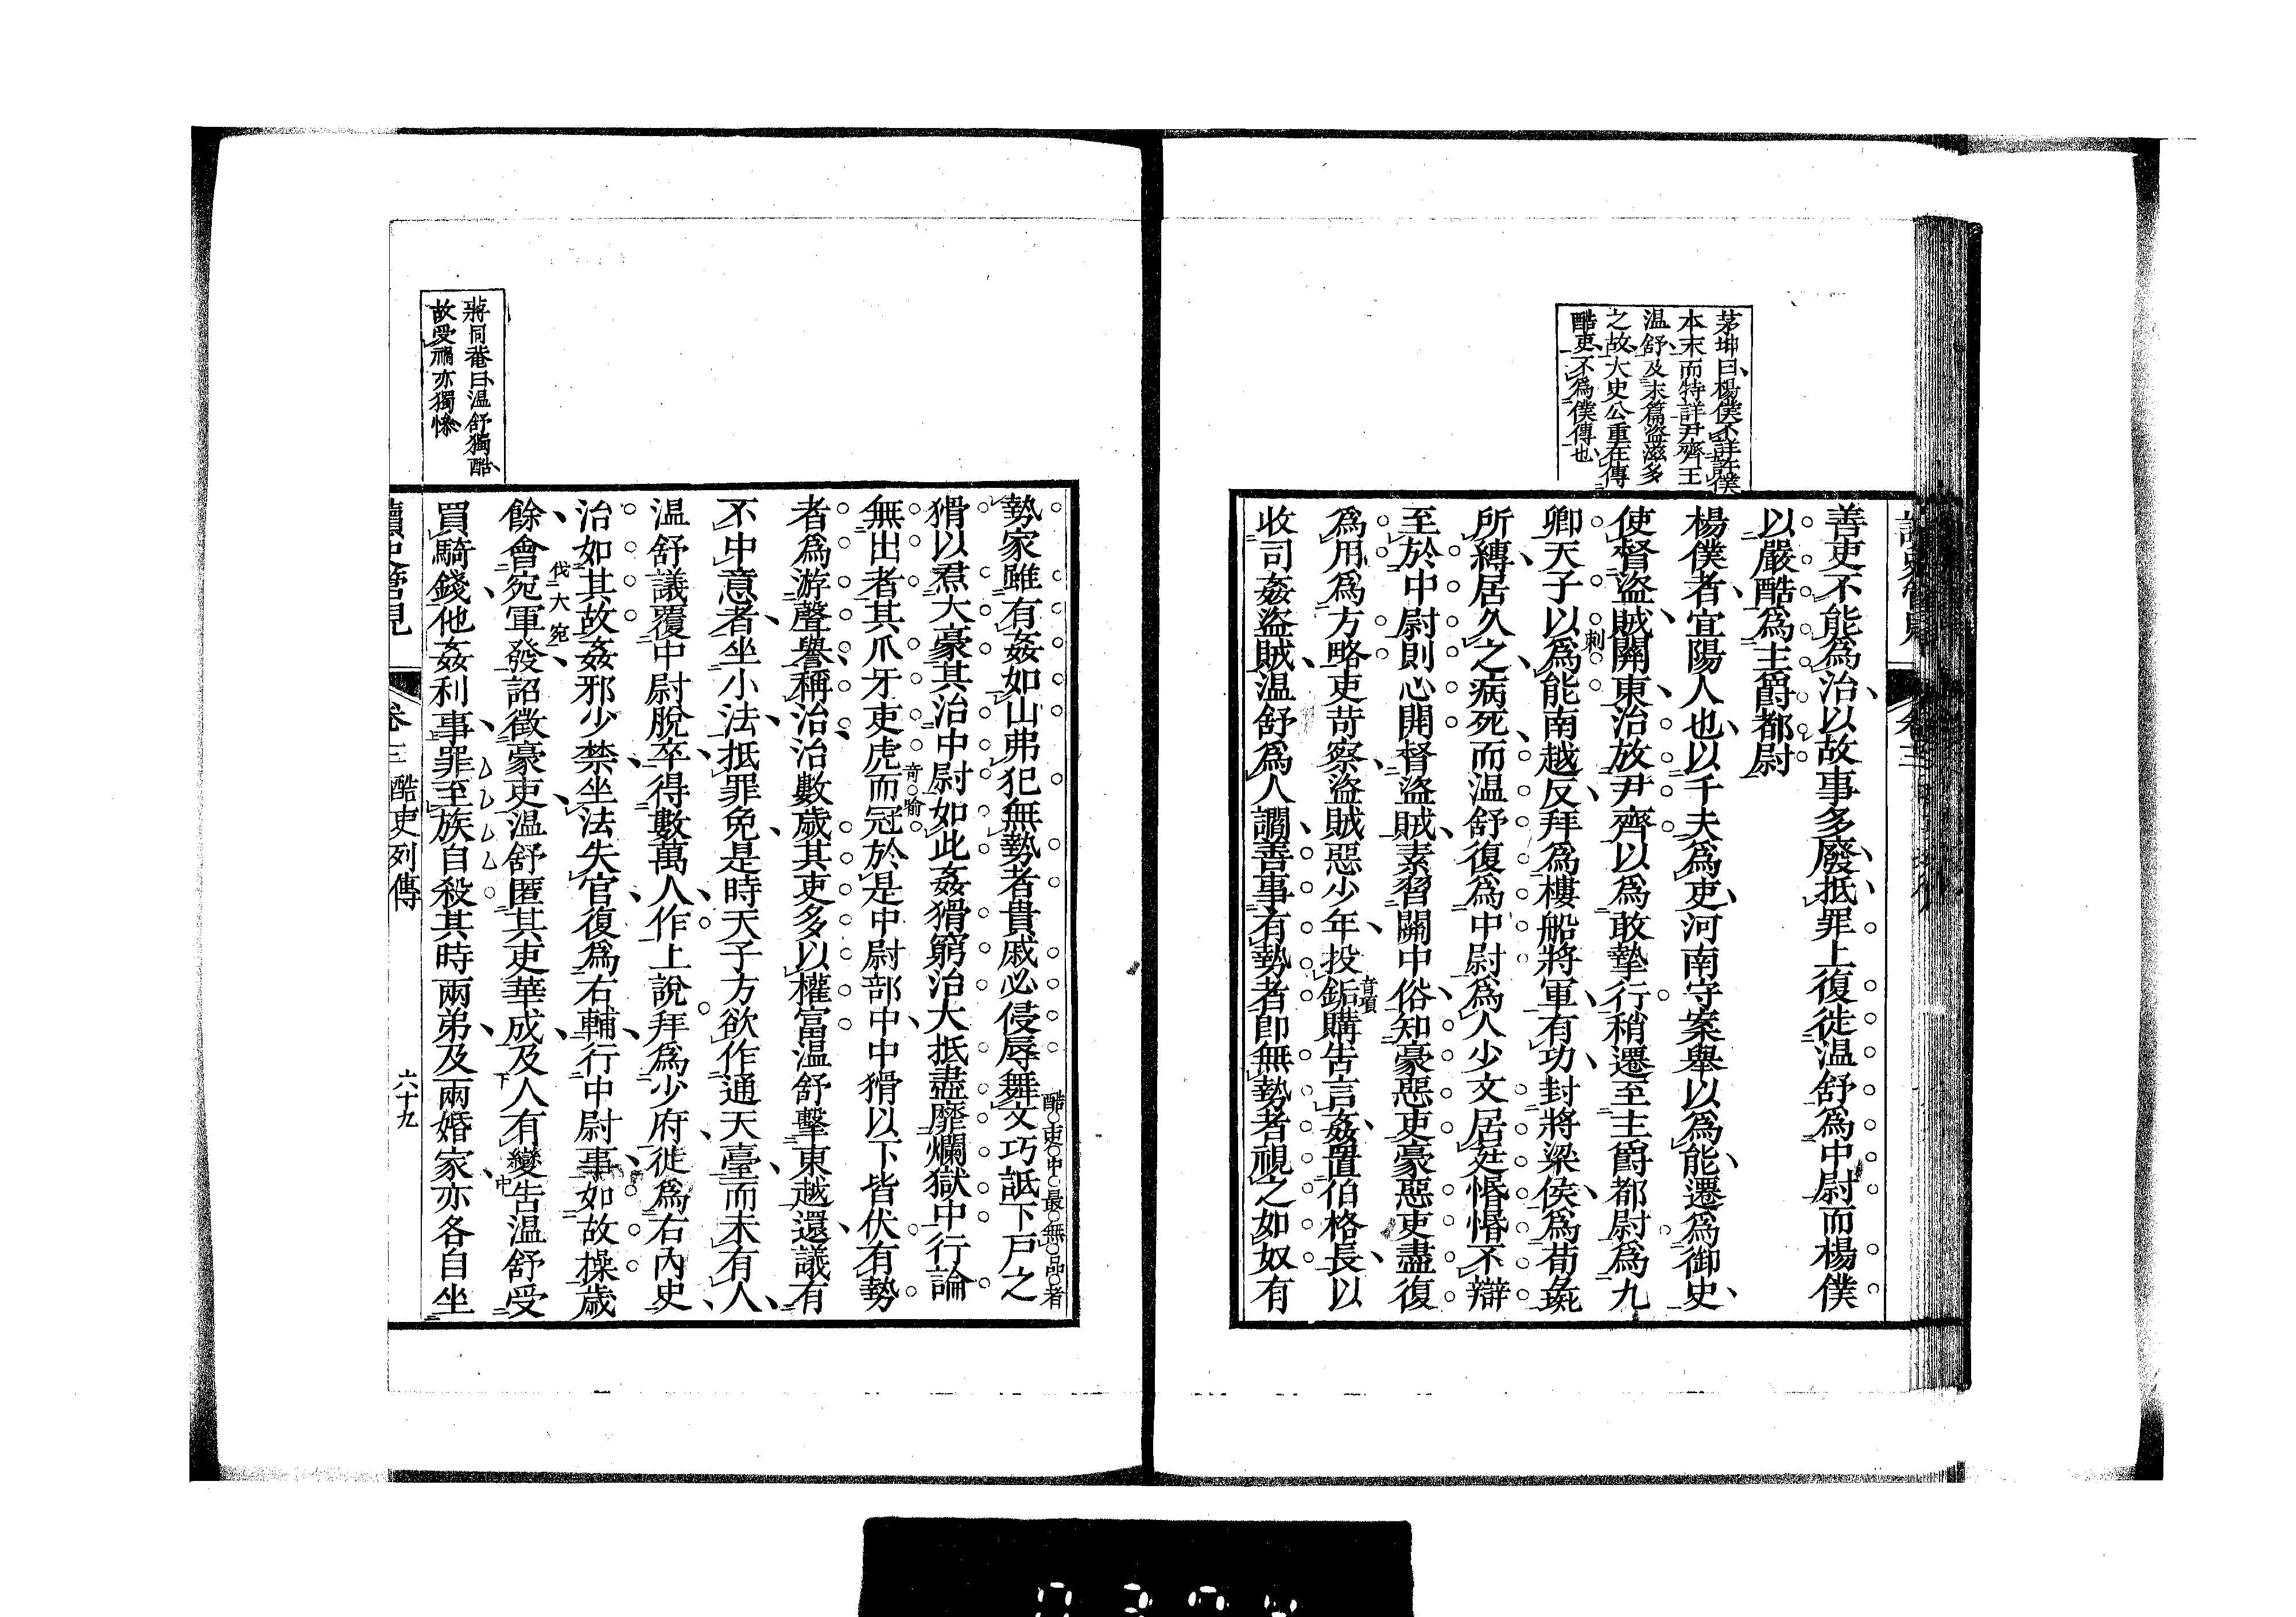 茅坤曰楊僕不詳許僕
本末而特詳尹齊王
温舒及末篇盜滋多
之故大史公重在傳
酷吏不爲僕傳也
善吏不能為治以故事多廢抵罪上復徙温舒為中尉而楊僕
以嚴酷為主爵都尉
楊僕者宜陽人也以千夫為吏河南守案舉以為能遷為御史
使督盜賊關東治放尹齊以為敢摯行稍遷至主爵都尉為九
卿天子以為能南越反拜為樓船將軍有功封將梁侯為荀彘
刺
所縛居久之病死而温舒復為中尉為人少文居廷惛惛不辯
至於中尉則心開督盜賊素習關中俗知豪惡吏豪惡吏盡復
為用為方略吏苛察盜賊惡少年投缿購告言姦置伯格長以
音項
收司姦盜賊温舒為人讇善事有勢者即無勢者視之如奴有
勢家雖有姦如山弗犯無勢者貴戚必侵辱舞文巧詆下戶之
酷吏中最無品者
猾以焄大豪其治中尉如此姦猾窮治大抵盡靡爛獄中行論
無出者其爪牙吏虎而冠於是中尉部中中猾以下皆伏有勢
奇喻
者為游聲譽稱治治數歲其吏多以權富温舒擊東越還議有
不中意者坐小法抵罪免是時天子方欲作通天臺而未有人
温舒議覆中尉脫卒得數萬人作上說拜為少府徙為右內史
治如其故姦邪少禁坐法失官復為右輔行中尉事如故操歲
餘會宛軍發詔徵豪吏温舒匿其吏華成及人有變告温舒受
伐大宛
買騎錢他姦利事罪至族自殺其時兩弟及兩婚家亦各自坐
蔣同菴曰温舒獨酷
故受禍亦獨慘
讀史管見 卷三 酷吏列傳 六十九